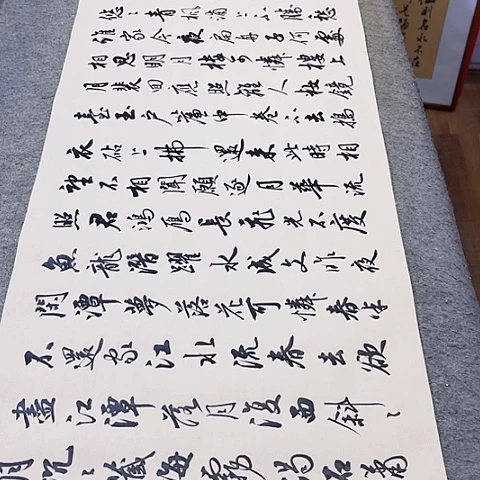 悠〻青楓浦上不勝愁
誰家今夜扁舟子何處
相思明月樓可憐樓上
月裴回應照離人妝鏡
臺玉戶簾中卷不去搗
衣砧上拂還來此時相
望不相聞願逐月華流
照君鴻雁長飛光不度
魚龍潛躍水成文昨夜
閑潭夢落花可憐春半
不還家江水流春去欲
盡江潭落月復西斜〻
月沉〻藏海霧碣石瀟